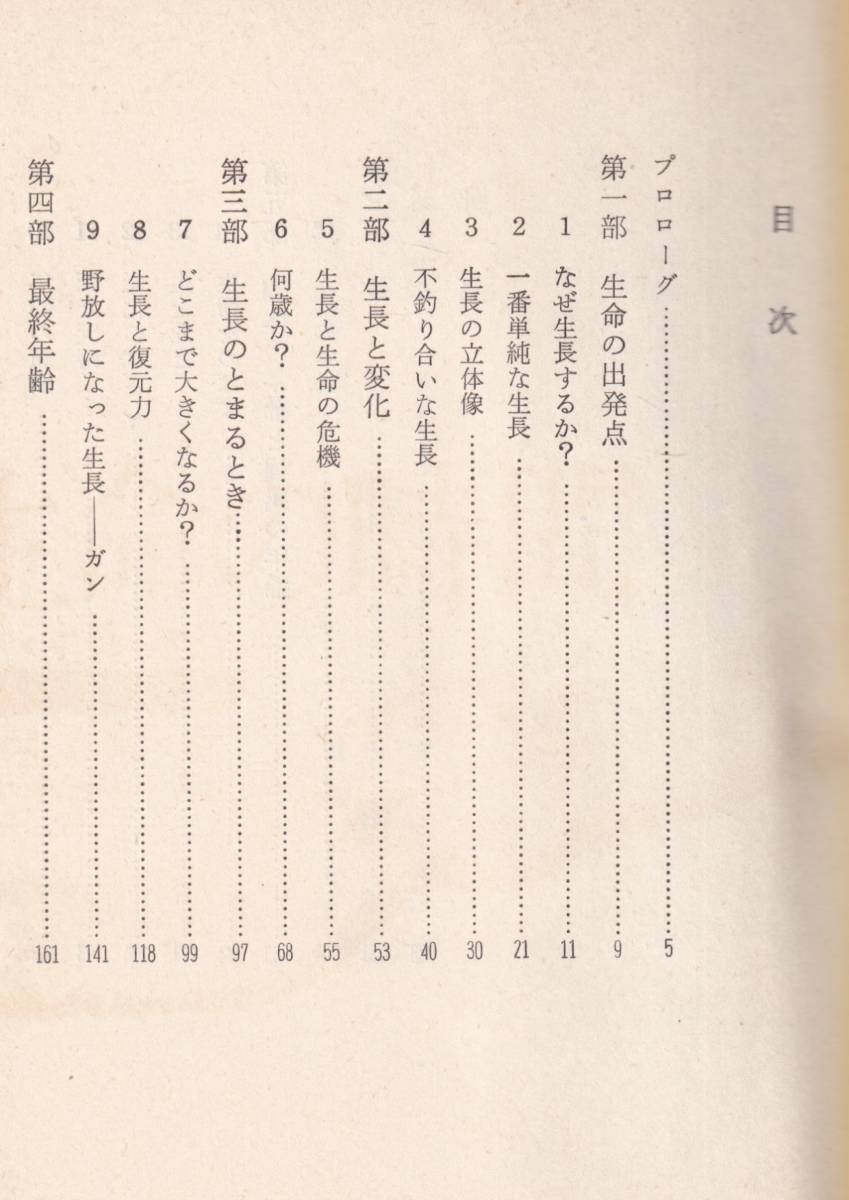 目次
プロローグ……5
第一部 生命の出発点……9
1 なぜ生長するか？……11
2 一番単純な生長……21
3 生長の立体像……30
4 不釣り合いな生長……40
第二部 生長と変化……53
5 生長と生命の危機……55
6 何歳か？……68
第三部 生長のとまるとき……97
7 どこまで大きくなるか？……99
8 生長と復元力……118
9 野放しになった生長――ガン……141
第四部 最終年齢……161